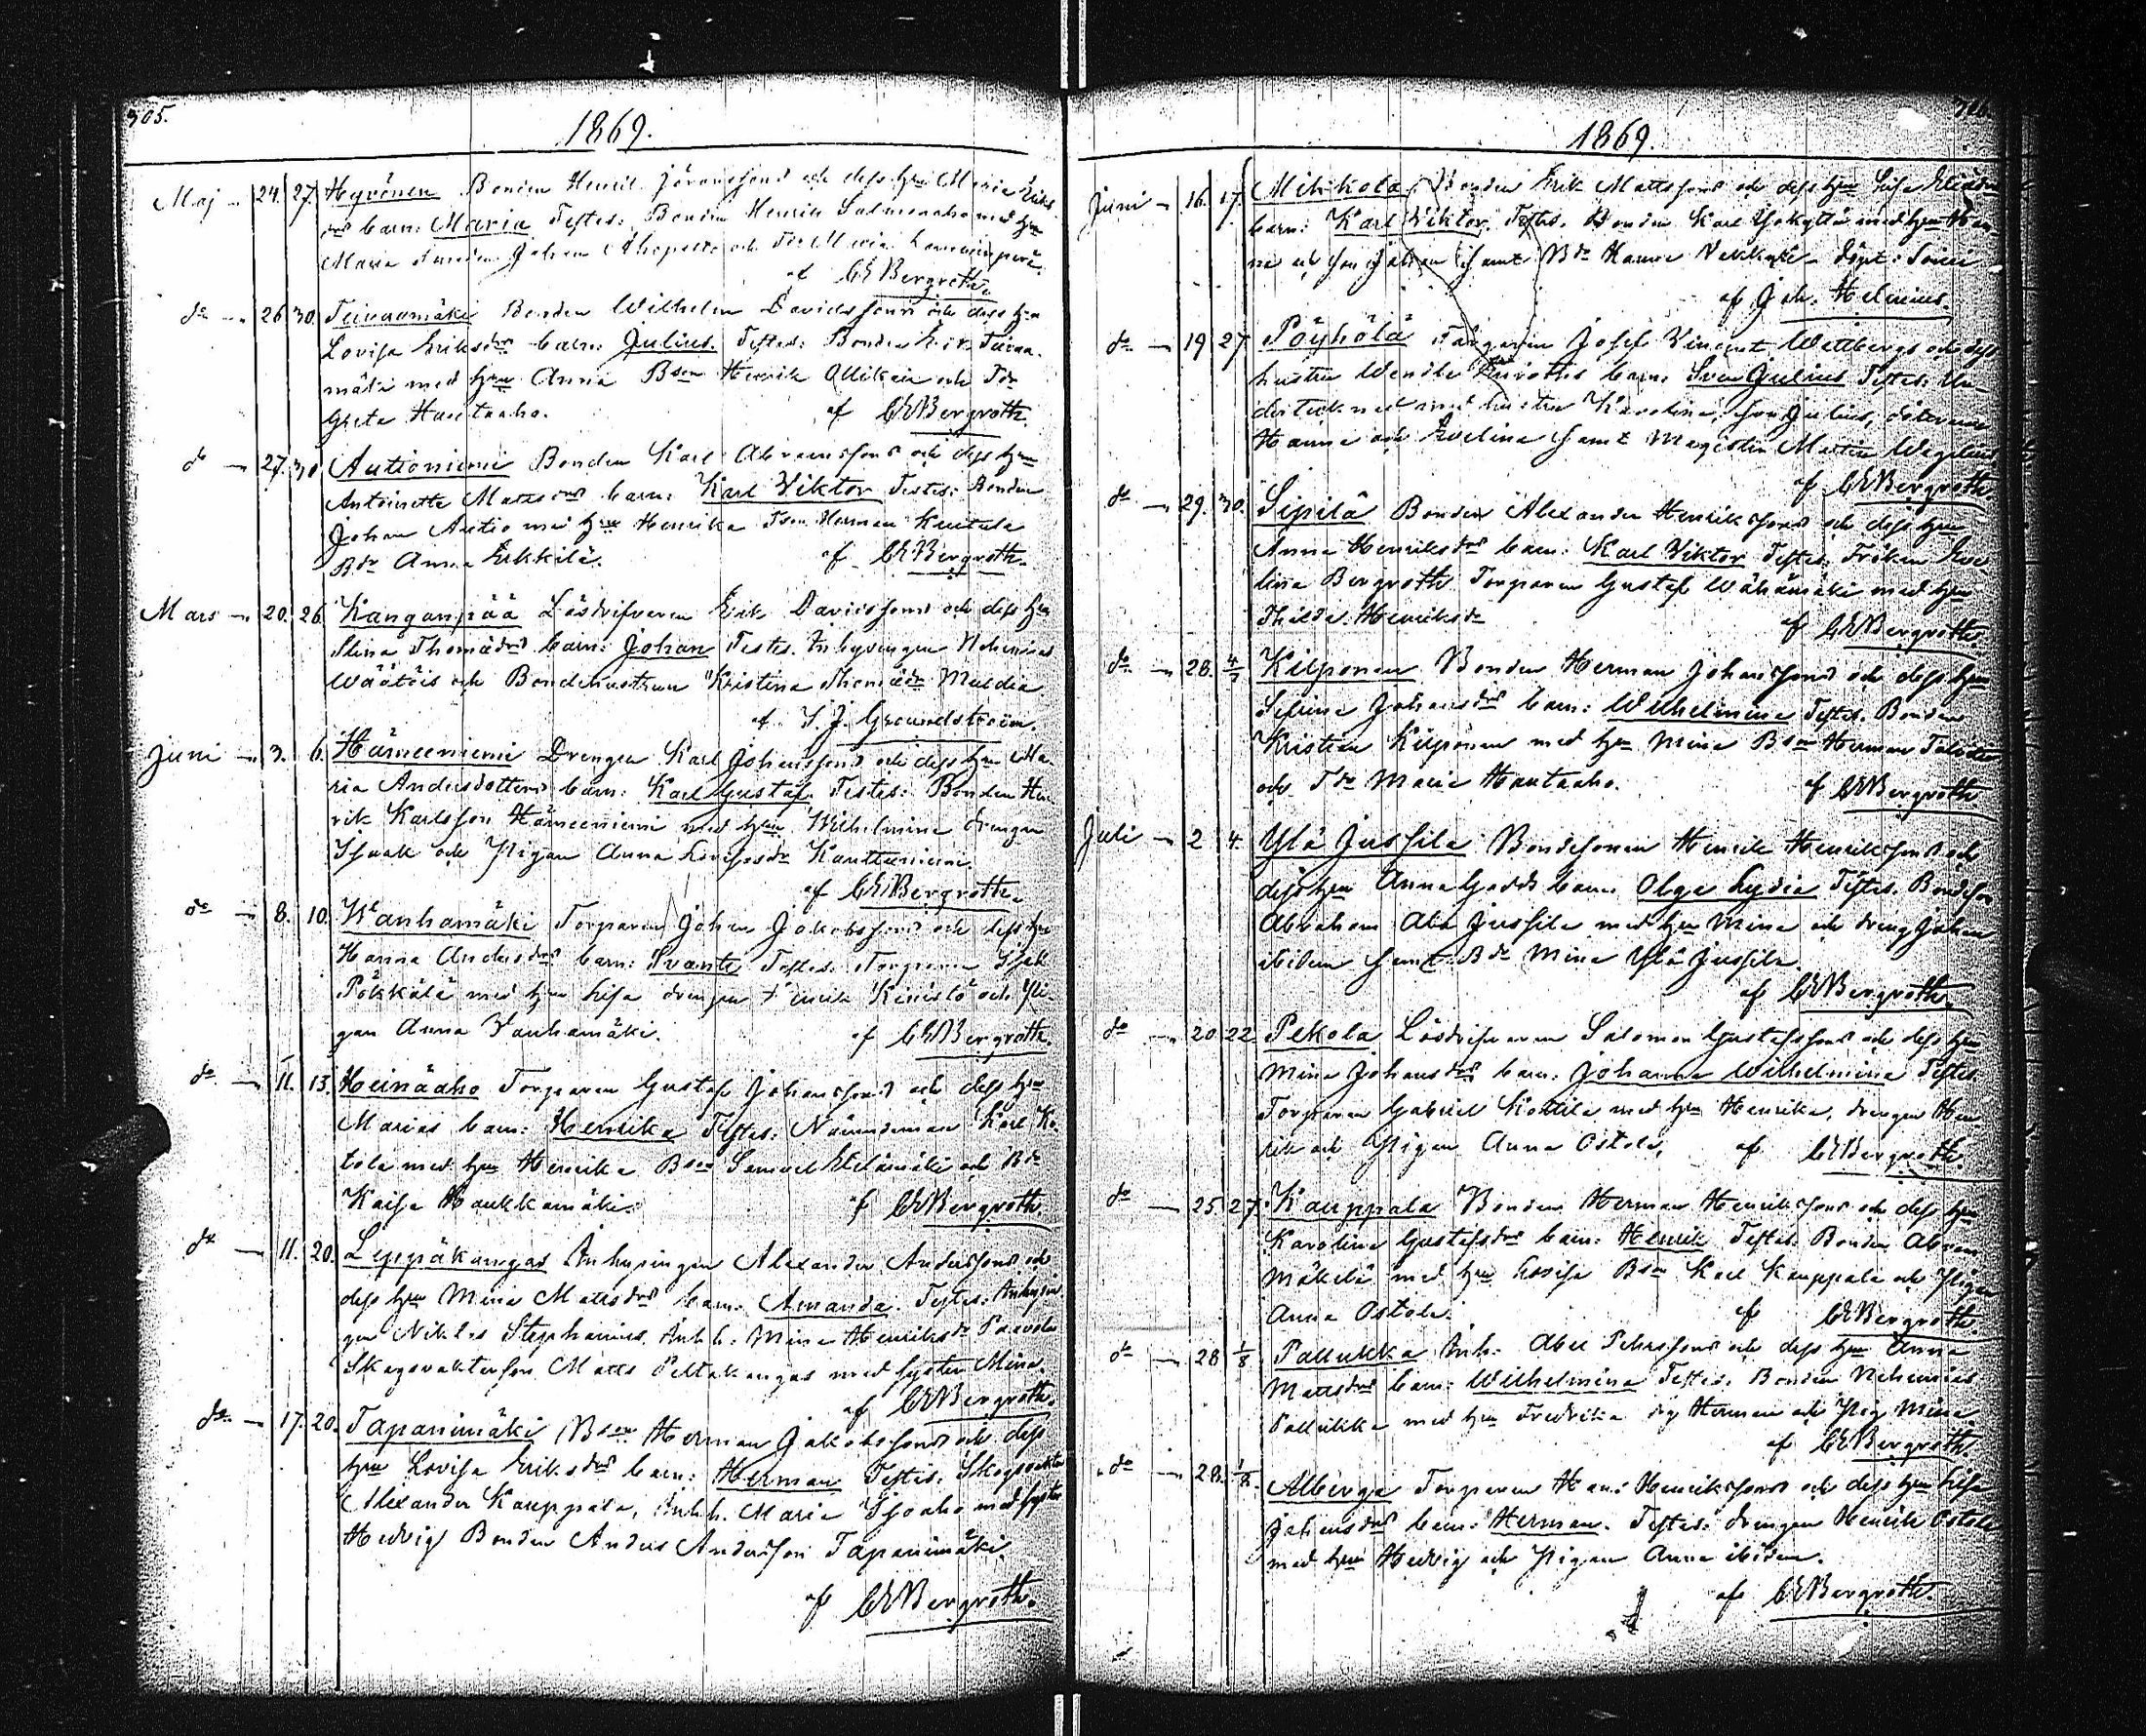 305.
1869.
Maj - 24. 27. Hyvönen Bonden Henrik Jöranssons och dess hu Maria Eriks-
drs barn: Maria Testes: Bonden Henrik Salmenaho med hu
Maria Johan Ahopelto och Tdr Maria
af CE Bergroth.
do - 26 30. Teirinmäki Bonden Wilhelm Davidssons och dess hu
Lovisa Eriksdrs barn: Julius. Testes: Bonden Erik
mäki med hu Anna Bson Henrik Ollikain och Tdr
Greta Hautaaho. af CE Bergroth.
do - 27. 30 Autioniemi Bonden Karl Abramssons och dess hu
Antoinette Mattsdrs barn: Karl Viktor Testes: Bonden
Johan Autio med hu Henrika Tson Herman Kentala
Bdr Anna Erkkilä. af CE Bergroth.
Mars - 20. 26. Kanganpää Lösdrifvaren Erik Davidssons och dess hu
Stina Thomædrs barn: Johan Testes. Inhysingen Nehemias
Wäätäis och Bondehustrun Kristina Thomædr Muldia
af S. J. Groundstroëm.
Juni - 3. 6. Hämeeniemi Drengen Karl Johanssons och dess hu Ma-
ria Andersdotters barn: Karl Gustaf Testes: Bonden Hen-
rik Karlsson Hämeeniemi med hu Wilhelmina drengen
Isaak och Pigan Anna Lovisa Kauttuniemi
af CE Bergroth.
do - 8. 10. Wanhamäki Torparen Johan Jakobssons och dess hu
Hanna Andersdrs barn: Svante Testes: Torparen Isak
Pökkälä med hu Lisa drengen Henrik Kinistö och Pi-
gan Anna Vanhamäki. af CE Bergroth.
do - 11. 13. Heinäaho Torparen Gustaf Johanssons och dess hu
Marias barn: Henrika Testes: Nämndeman Karl Ko-
tola med hu Henrika Bson Samuel Etelämäki och Bdr
Kaisa Haukkamäki. af CE Bergroth.
do - 11. 20. Leppäkangas Inhysingen Alexander Anderssons och
dess hu Mina Mattsdrs barn: Amanda. Testes: Inhysin-
gen Niklas Stephanius. Inh h. Mina Henriksdr Paavola
Skogsvaktarson Matts Peltokangas med syster Mina
af CE Bergroth.
do - 17. 20. Tapanimäki Bson Herman Jakobssons och dess
hu Lovisa Eriksdrs barn: Herman Testes: Skogsvakt
Alexander Kauppala, Inh h. Maria Isoaho med syster
Hedvig Bonden Anders Andersson Tapanimäki.
af CE Bergroth.
1869.
Juni - 16. 17. Mikkola Bonden Erik Mattssons och dess hu Lisa
barn: Karl Viktor. Testes. Bonden Karl med hu Han-
na och son Johan samt Bdr Hanna döpt:
af Joh. Helenius.
do - 19 27 Pöyhölä Färgaren Josef Vincent Wettbergs och dess
hustru Wendla barn: Sven Julius Testes: Un-
dertecknad med hustru Karolina, son Julius, döttrarna
Hanna och Evelina samt Magistern Martin Wegelius
af CE Bergroth
do - 29. 30. Sipilä Bonden Alexander Henrikssons och dess hu
Anna Henriksdrs barn: Karl Viktor Testes: Fröken Eve-
lina Bergroth Torparen Gustaf Wähämäki med hu
Thilda Henriksdr af CE Bergroth.
do - 28. 4/7 Kilponen Bonden Herman Johanssons och dess hu
Serina Johansdrs barn: Wilhelmina Testes. Bonden
Kristian Kilponen med hu Mina Bson Herman
och Tdr Maria Hautaaho. af CE Bergroth
Juli - 2 4. Ylä Jussila Bondesonen Henrik Henrikssons och
dess hu Anna Gadds barn Olga Lydia Testes. Bondeson
Abraham Ala Jussila med hu Mina och dreng Johan
ibidem samt Bdr Mina Ylä Jussila.
af CE Bergroth.
do - 20. 22. Pekola Lösdrifvaren Salomon Gustafssons och dess hu
Mina Johansdrs barn: Johanna Wilhelmina Testes.
Torparen Gabriel Kottila med hu Henrika, drengen Hen-
rik och Pigan Anna Ostola, af CE Bergroth.
do - 25. 27. Kauppala Bonden Herman Henrikssons och dess hu
Karolina Gustafsdrs barn: Henrik Testes. Bonden Abram
Mäkelä med hu Lovisa Bson Karl Kauppala och Pigan
Anna Ostola. af CE Bergroth.
do - 28 1/8 Pallukka Inh. Abel Petersons och dess hu Anna
Mattsdrs barn: Wilhelmina Testes. Bonden Nehemias
Pallukka med hu Fredrika drg Herman och Pig Mina.
af CE Bergroth
do - 28. 1/8. Alberga Torparen Hans Henrikssons och dess hu Lisa
Johansdrs barn: Herman. Testes: drengen Henrik Ostola
med hu Hedvig och Pigan Anna ibidem.
af CE Bergroth.